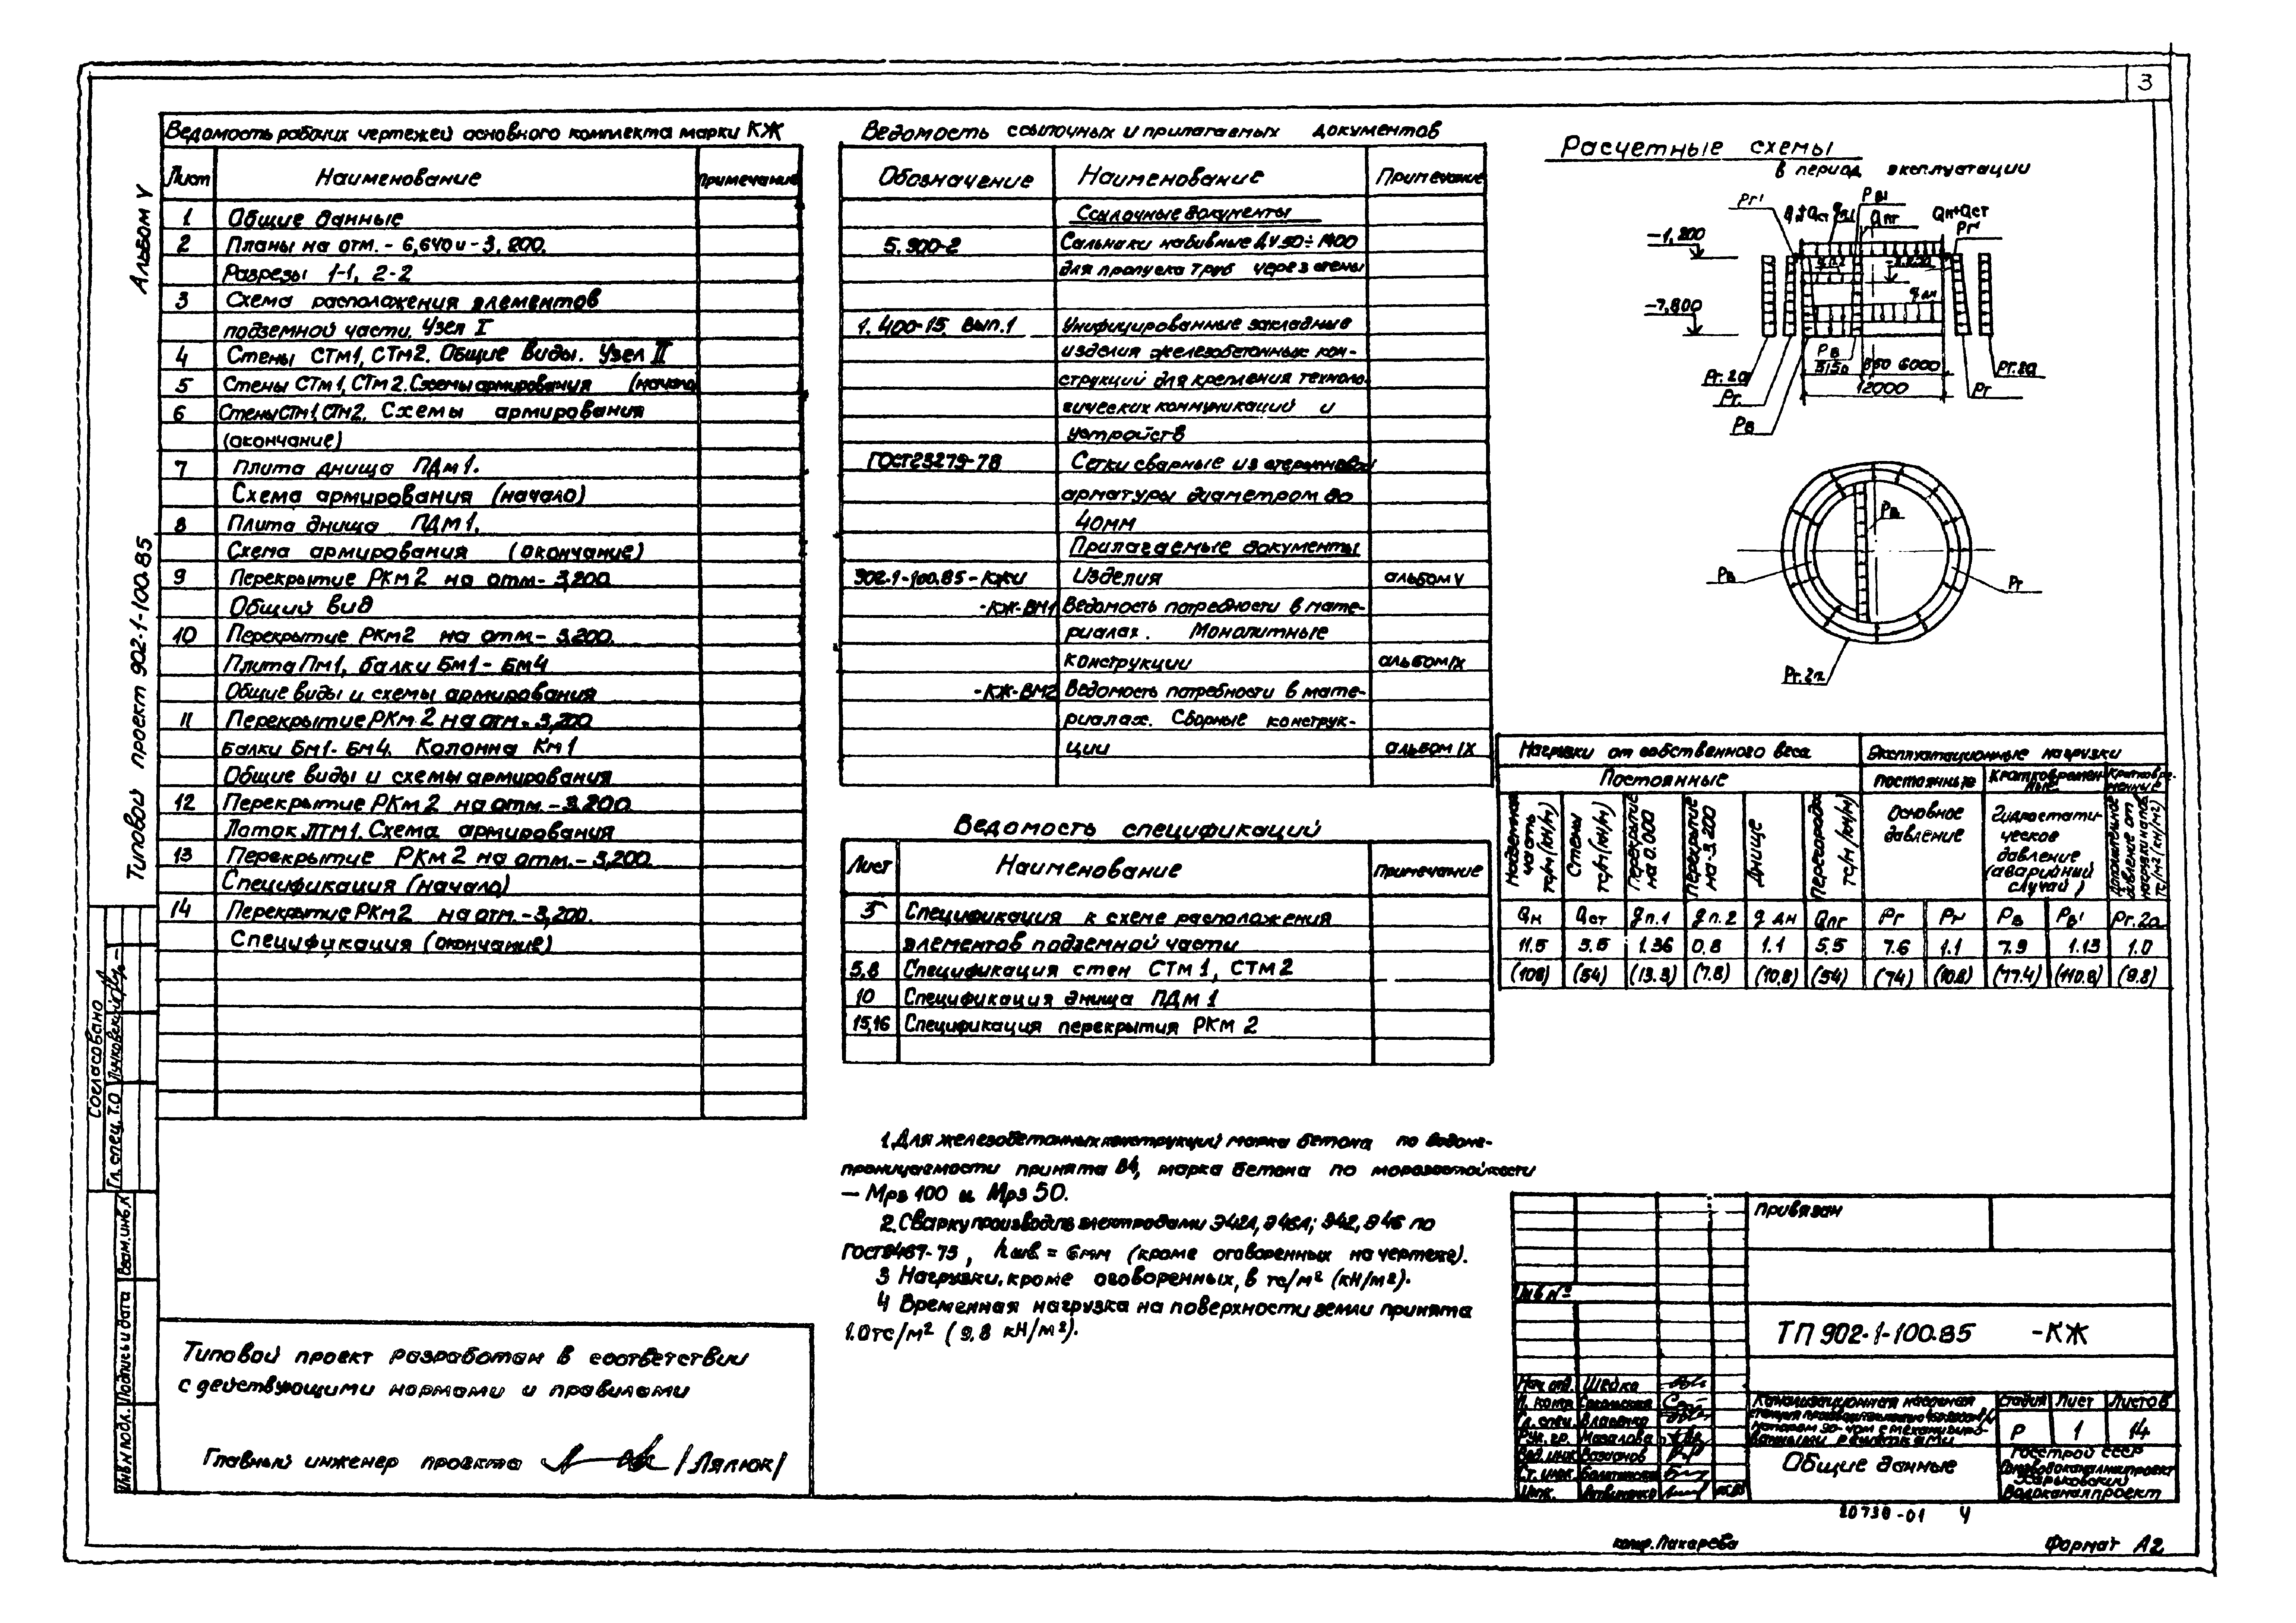 3
Альбом V
Типовой проект 902-1-100.85
Ведомость рабочих чертежей основного комплекта марки КЖ
Лист Наименование Примечание
1 Общие данные
2 Планы на отм. - 6,640 и - 3,200.
Разрезы 1-1, 2-2
3 Схема расположения элементов
подземной части. Узел I
4 Стены СТм1, СТм2. Общие виды. Узел II
5 Стены СТм1, СТм2. Схемы армирования (начало)
6 Стены СТм1, СТм2. Схемы армирования
(окончание)
7 Плита днища ПДм1.
Схема армирования (начало)
8 Плита днища ПДм1.
Схема армирования (окончание)
9 Перекрытие РКм2 на отм.- 3,200
Общий вид
10 Перекрытие РКм2 на отм.- 3,200.
Плита Пм1, балки Бм1- Бм4
Общие виды и схемы армирования
11 Перекрытие РКм 2 на отм.- 3,200
Балки Бм1- Бм4. Колонна Км1
Общие виды и схемы армирования
12 Перекрытие РКм 2 на отм.-3,200
Лоток ЛТм1. Схема армирования
13 Перекрытие РКм 2 на отм.- 3,200.
Спецификация (начало)
14 Перекрытие РКм2 на отм.-3,200.
Спецификация (окончание)
Ведомость ссылочных и прилагаемых документов
Обозначение Наименование Примечание
Ссылочные документы
5.900-2 Сальники набивные Ду 50÷1400
для пропуска труб через стены
1.400-15. Вып.1 Унифицированные закладные
изделия железобетонных кон-
струкций для крепления техноло-
гических коммуникаций и
устройств
ГОСТ23279-78 Сетки сварные из стержневой
арматуры диаметром до
40мм
Прилагаемые документы
902-1-100.85-КЖИ Изделия альбом V
-КЖ-ВМ1 Ведомость потребности в мате-
риалах. Монолитные
конструкции альбом IX
-КЖ-ВМ2 Ведомость потребности в мате-
риалах. Сборные конструк-
ции альбом IX
Ведомость спецификаций
Лист Наименование Примечание
3 Спецификация к схеме расположения
элементов подземной части
5,8 Спецификация стен СТм 1, СТм 2
10 Спецификация днища ПДм 1
15,16 Спецификация перекрытия РКм 2
Расчетные схемы
в период эксплуатации
Рг' Qн+Qст qп.1 Рв' Qпг Qн+Qст Рг'
-1,200
-7,800
qп.2 qдн
Рв 5150 850 6000
12000
Рг.2а Рг. Рв Рг Рг.2а
Рв Рв Рг
Рг.2п
Нагрузки от собственного веса Эксплуатационные нагрузки
Постоянные постоянные Кратковремен-ные Кратковре-менные
Надземная часть тс/м (кн/м) Стены тс/м (кн/м) Перекрытие на 0.000 Перекрытие на -3.200 Днище Перегородка тс/м (кн/м) Основное давление Гидростати-ческое давление (аварийный случай) Дополнительное давление от нагрузки на пов. тс/м2 (кн/м2)
Qн Qст qп.1 qп.2 qдн Qпг Рг Рг' Рв Рв' Рг.2а
11.5 5.5 1.36 0.8 1.1 5.5 7.6 1.1 7.9 1.13 1.0
(108) (54) (13.3) (7.8) (10.8) (54) (74) (10.8) (77.4) (110.8) (9.8)
1. Для железобетонных конструкций марка бетона по водоне-
проницаемости принята В4, марка бетона по морозостойкости
— Мрз 100 и Мрз 50.
2. Сварку производить электродами Э42А, Э46А; Э42, Э46 по
ГОСТ9467-75, hшв = 6мм (кроме оговоренных на чертеже).
3 Нагрузки, кроме оговоренных, в тс/м² (кН/м²).
4 Временная нагрузка на поверхности земли принята
1.0тс/м² (9,8 кН/м²).
Типовой проект разработан в соответствии
с действующими нормами и правилами
Главный инженер проекта /Лялюк/
Согласовано
Гл. спец. Т.О
Инв N подл. Подпись и дата Взам. инв. N
привязан
Инв №
ТП 902-1-100.85 -КЖ
Нач. отд. Шейко
Н. контр.
Гл. спец. Власенко
Рук. гр. Мазалова
Вед. инж.
Ст. инж.
Инж. Литвиненко
Канализационная насосная
станция производительностью
напором 30-40м с механизиро-
ванными решетками
Стадия Лист Листов
Р 1 14
Общие данные
Госстрой СССР
Союзводоканалниипроект
Харьковский
Водоканалпроект
20730-01 4
копир. Пахарева
Формат А2